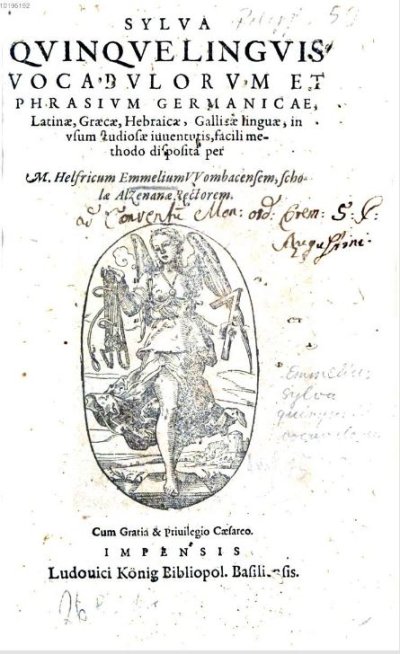 10196192
SYLVA
QVINQVELINGVIS
VOCABVLORVM ET
PHRASIVM GERMANICAE,
Latinæ, Græcæ, Hebraicæ, Gallicæ linguæ, in
vsum studiosæ iuuentutis, facili me-
thodo disposita per
M. Helfricum Emmelium VVombacensem, scho-
læ Alzenanæ rectorem.
ad Conventū Mon: ord: Erem: S. P.
Augustini.
Emmelius
Sylva
Cum Gratia & Priuilegio Cæsareo.
IMPENSIS
Ludouici König Bibliopol. Basiliensis.